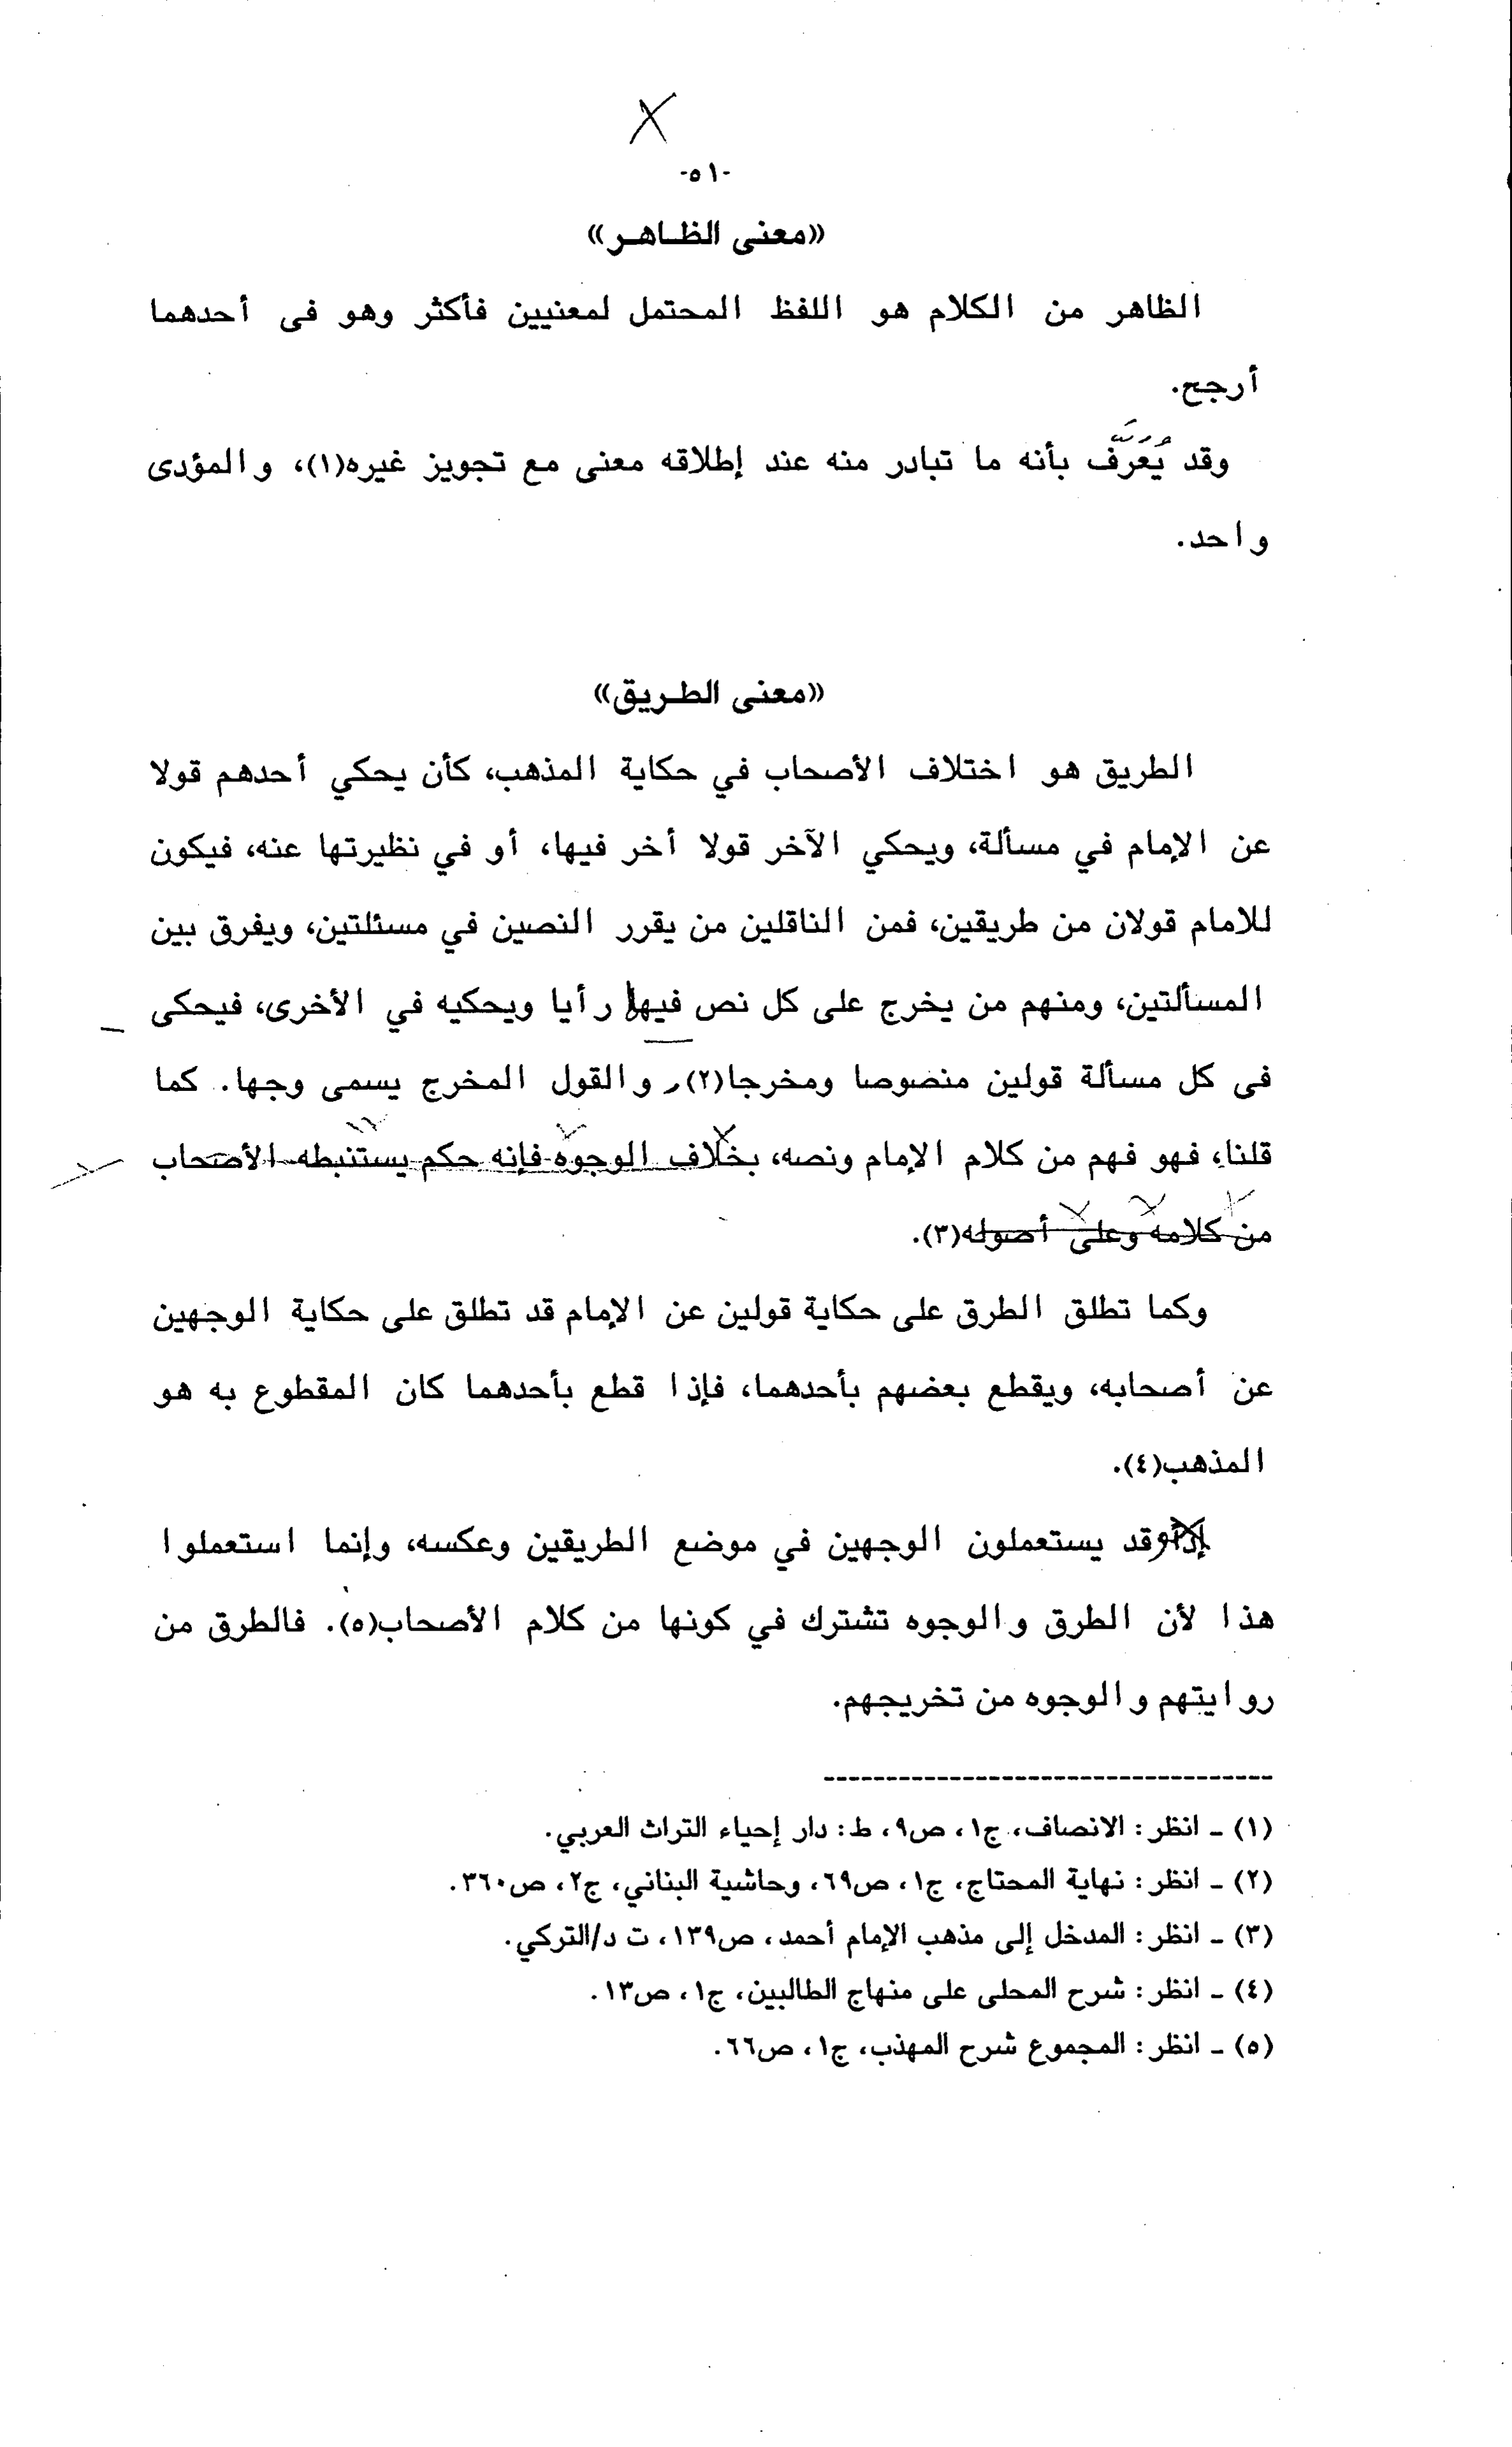 -٥١-
«معنى الظاهر»
الظاهر من الكلام هو اللفظ المحتمل لمعنيين فأكثر وهو فى أحدهما
أرجح.
وقد يُعرَّف بأنه ما تبادر منه عند إطلاقه معنى مع تجويز غيره(١)، والمؤدى
واحد.
«معنى الطريق»
الطريق هو اختلاف الأصحاب في حكاية المذهب، كأن يحكي أحدهم قولا
عن الإمام في مسألة، ويحكي الآخر قولا أخر فيها، أو في نظيرتها عنه، فيكون
للامام قولان من طريقين، فمن الناقلين من يقرر النصين في مسئلتين، ويفرق بين
المسألتين، ومنهم من يخرج على كل نص فيها رأيا ويحكيه في الأخرى، فيحكى
فى كل مسألة قولين منصوصا ومخرجا(٢)، والقول المخرج يسمى وجها. كما
قلنا، فهو فهم من كلام الإمام ونصه، بخلاف الوجوه فإنه حكم يستنبطه الأصحاب
من كلامه وعلى أصوله(٣).
وكما تطلق الطرق على حكاية قولين عن الإمام قد تطلق على حكاية الوجهين
عن أصحابه، ويقطع بعضهم بأحدهما، فإذا قطع بأحدهما كان المقطوع به هو
المذهب(٤).
وقد يستعملون الوجهين في موضع الطريقين وعكسه، وإنما استعملوا
هذا لأن الطرق والوجوه تشترك في كونها من كلام الأصحاب(٥). فالطرق من
روايتهم والوجوه من تخريجهم.
(١) ـ انظر: الانصاف، ج١، ص٩، ط: دار إحياء التراث العربي.
(٢) ـ انظر: نهاية المحتاج، ج١، ص٦٩، وحاشية البناني، ج٢، ص٣٦٠.
(٣) ـ انظر: المدخل إلى مذهب الإمام أحمد، ص١٣٩، ت د/التركي.
(٤) ـ انظر: شرح المحلى على منهاج الطالبين، ج١، ص١٣.
(٥) ـ انظر: المجموع شرح المهذب، ج١، ص٦٦.